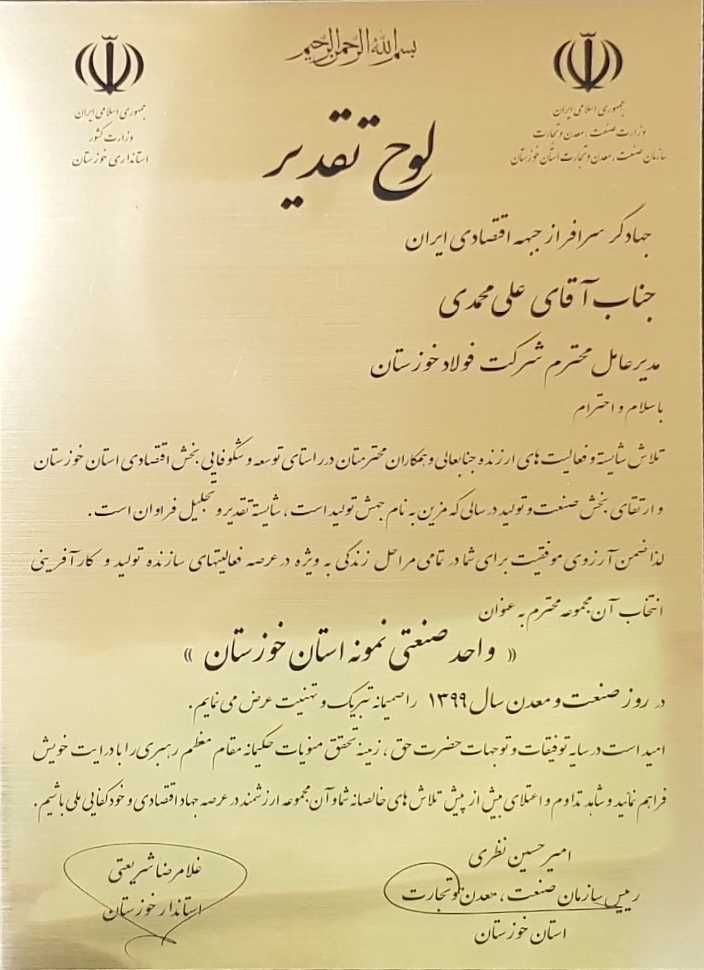 بسم الله الرحمن الرحیم
جمهوری اسلامی ایران
وزارت صنعت، معدن و تجارت
سازمان صنعت، معدن و تجارت استان خوزستان
جمهوری اسلامی ایران
وزارت کشور
استانداری خوزستان
لوح تقدیر
جهادگر سرافراز جبهه اقتصادی ایران
جناب آقای علی محمدی
مدیرعامل محترم شرکت فولاد خوزستان
با سلام و احترام
تلاش شایسته و فعالیت های ارزنده جنابعالی و همکاران محترمتان در راستای توسعه و شکوفایی بخش اقتصادی استان خوزستان
و ارتقای بخش صنعت و تولید در سالی که مزین به نام جهش تولید است، شایسته تقدیر و تجلیل فراوان است.
لذا ضمن آرزوی موفقیت برای شما در تمامی مراحل زندگی به ویژه در عرصه فعالیتهای سازنده تولید و کارآفرینی
انتخاب آن مجموعه محترم به عنوان
« واحد صنعتی نمونه استان خوزستان »
در روز صنعت و معدن سال ۱۳۹۹ را صمیمانه تبریک و تهنیت عرض می نمایم.
امید است در سایه توفیقات و توجهات حضرت حق، زمینه تحقق منویات حکیمانه مقام معظم رهبری را با درایت خویش
فراهم نمائید و شاهد تداوم و اعتلای بیش از پیش تلاش های خالصانه شما و آن مجموعه ارزشمند در عرصه جهاد اقتصادی و خودکفایی ملی باشیم.
امیرحسین نظری
رییس سازمان صنعت، معدن و تجارت
استان خوزستان
غلامرضا شریعتی
استاندار خوزستان